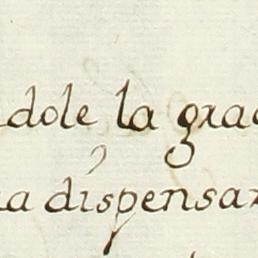 dole la grac
a dispensar